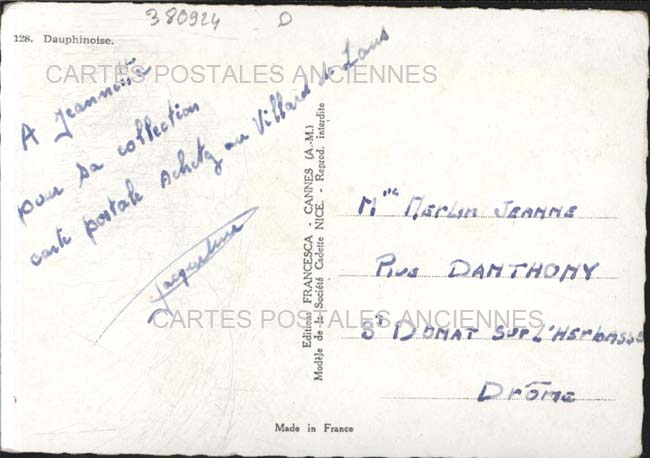 380924 D
128. Dauphinoise.
CARTES POSTALES ANCIENNES
A Jeannette
pour sa collection
carte postale achetez au Villard de Lans
Jacqueline
Editions FRANCESCA - CANNES (A.-M.)
Modèle de la Société Cadette NICE. - Reprod. interdite
Mlle Merlin Jeanne
DANTHONY
CARTES POSTALES ANCIENNES
St DONAT SUR L'HERBASSE
Drôme
Made in France